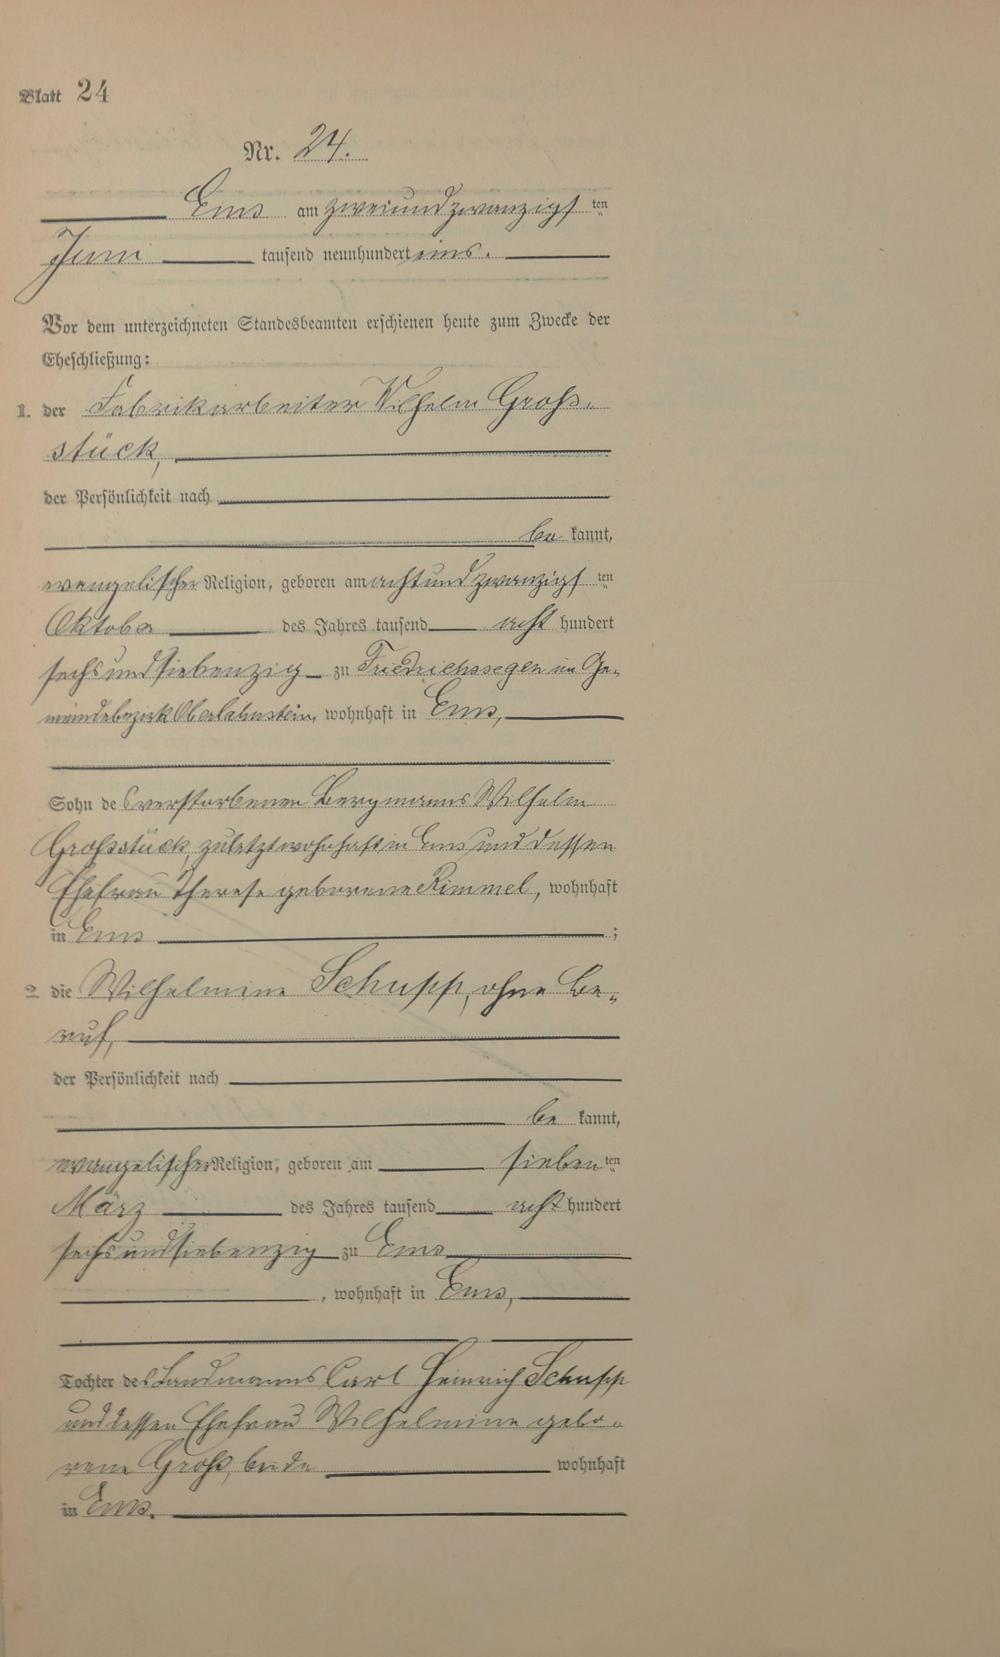 Blatt 24
Nr. 24.
Ems am zweiundzwanzigsten
Juni tausend neunhundert eins.
Vor dem unterzeichneten Standesbeamten erschienen heute zum Zwecke der
Eheschließung:
1. der Fabrikarbeiter Wilhelm Groß-
stück,
der Persönlichkeit nach
be kannt,
evangelischer Religion, geboren am achtundzwanzigsten
Oktober des Jahres tausend acht hundert
sechsundsiebenzig zu Friedrichssegen im Ge-
meindebezirk Oberlahnstein, wohnhaft in Ems,
Sohn des verstorbenen Bergmanns Wilhelm
Großstück, zuletzt wohnhaft in Ems und dessen
Ehefrau Therese geborene Kimmel, wohnhaft
in Ems ;
2. die Wilhelmine Schupp, ohne Be-
ruf,
der Persönlichkeit nach
be kannt,
evangelischer Religion, geboren am siebenten
März des Jahres tausend acht hundert
sechsundsiebenzig zu Ems
, wohnhaft in Ems,
Tochter des Landmanns Carl Heinrich Schupp
und dessen Ehefrau Wilhelmine gebo-
rene Groß, beide wohnhaft
in Ems.